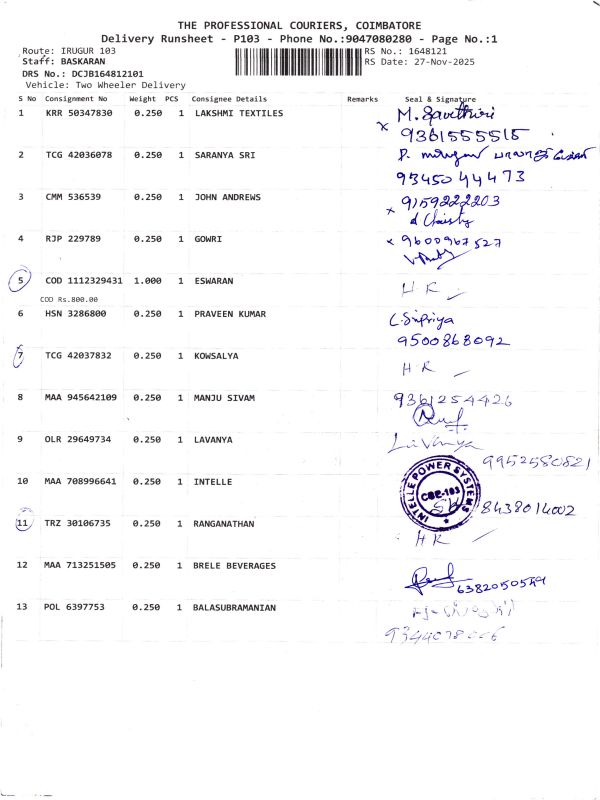 THE PROFESSIONAL COURIERS, COIMBATORE
Delivery Runsheet - P103 - Phone No.:9047080280 - Page No.:1
Route: IRUGUR 103 RS No.: 1648121
Staff: BASKARAN RS Date: 27-Nov-2025
DRS No.: DCJB164812101
Vehicle: Two Wheeler Delivery
S No Consignment No Weight PCS Consignee Details Remarks Seal & Signature
1 KRR 50347830 0.250 1 LAKSHMI TEXTILES M. Savithiri
x 9361555515
2 TCG 42036078 0.250 1 SARANYA SRI P.
9345044473
3 CMM 536539 0.250 1 JOHN ANDREWS x 9159222203
d Christy
4 RJP 229789 0.250 1 GOWRI x 9600967527
5 COD 1112329431 1.000 1 ESWARAN H R
COD Rs.800.00
6 HSN 3286800 0.250 1 PRAVEEN KUMAR C. Sripriya
9500868092
7 TCG 42037832 0.250 1 KOWSALYA H R
8 MAA 945642109 0.250 1 MANJU SIVAM 9361254426
9 OLR 29649734 0.250 1 LAVANYA Lavanya
9952580821
10 MAA 708996641 0.250 1 INTELLE INTELLE POWER SYSTEMS CBE-103
8438014002
11 TRZ 30106735 0.250 1 RANGANATHAN H R
12 MAA 713251505 0.250 1 BRELE BEVERAGES
13 POL 6397753 0.250 1 BALASUBRAMANIAN